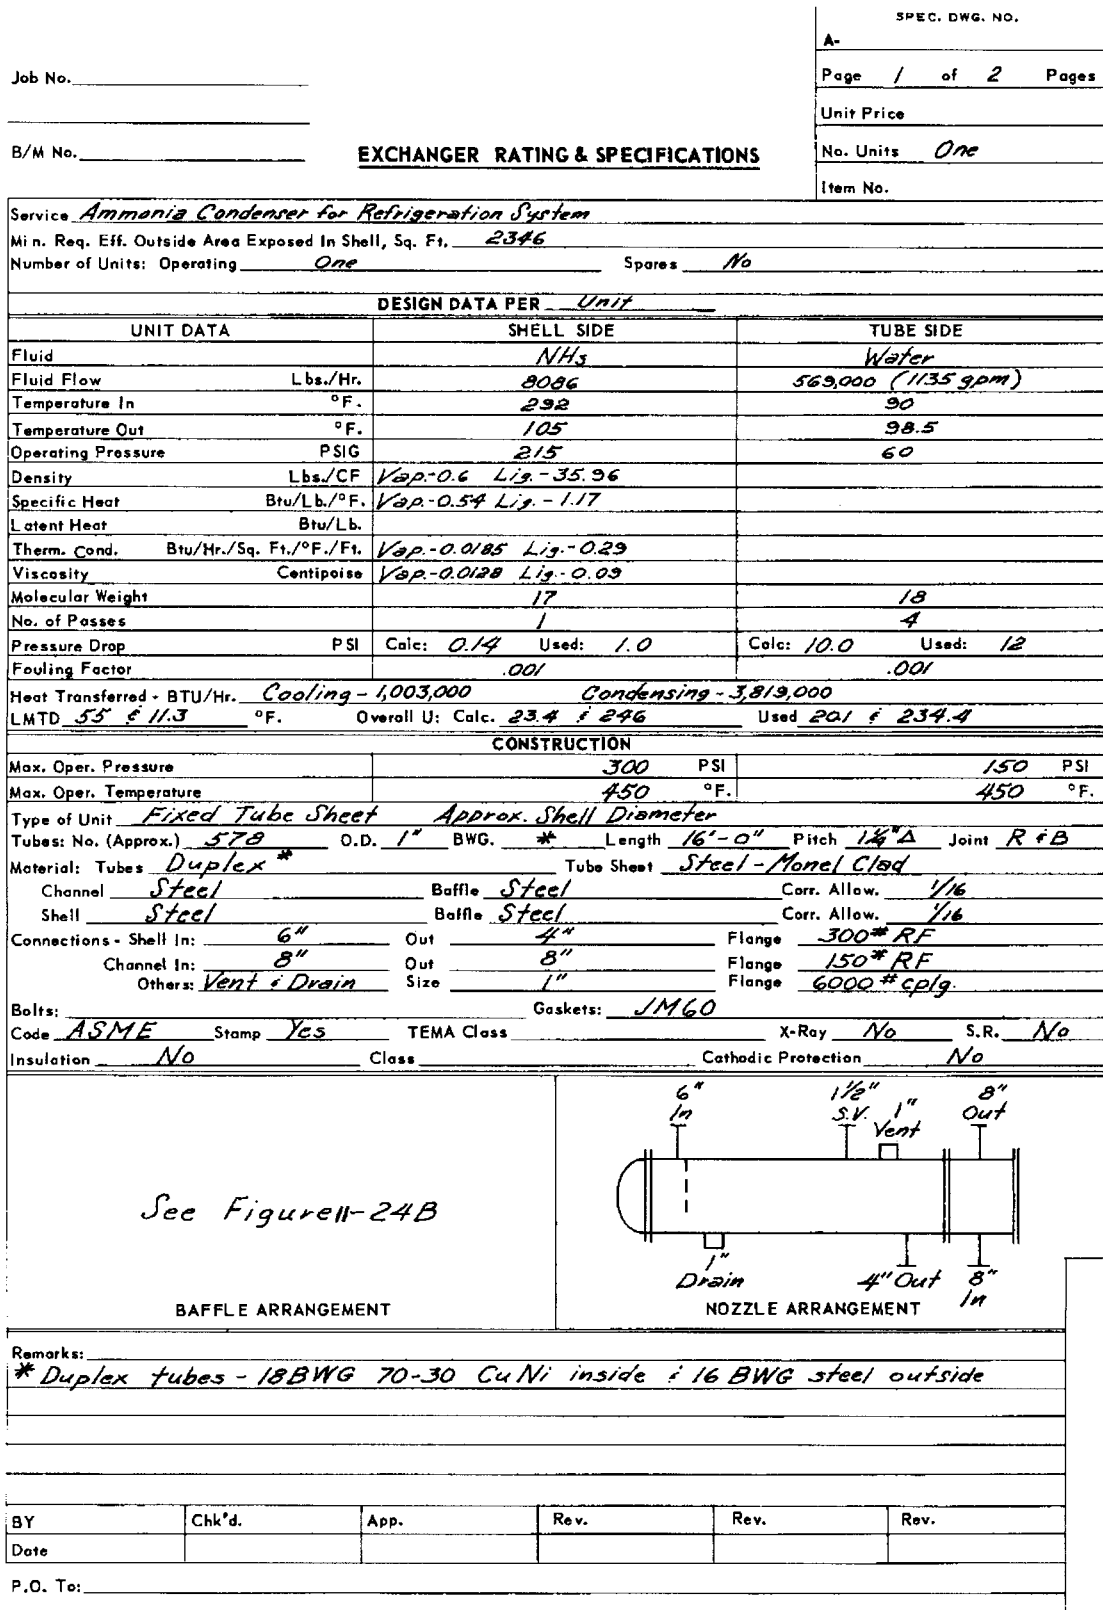 SPEC. DWG. NO.
A-
Job No.
Page 1 of 2 Pages
Unit Price
B/M No.
EXCHANGER RATING & SPECIFICATIONS
No. Units One
Item No.
Service Ammonia Condenser for Refrigeration System
Min. Req. Eff. Outside Area Exposed In Shell, Sq. Ft. 2346
Number of Units: Operating One Spares No
DESIGN DATA PER Unit
UNIT DATA SHELL SIDE TUBE SIDE
Fluid NH3 Water
Fluid Flow Lbs./Hr. 8086 569,000 (1135 gpm)
Temperature In °F. 292 90
Temperature Out °F. 105 98.5
Operating Pressure PSIG 215 60
Density Lbs/CF Vap.-0.6 Liq.-35.96
Specific Heat Btu/Lb./°F. Vap.-0.54 Liq.-1.17
Latent Heat Btu/Lb.
Therm. Cond. Btu/Hr./Sq. Ft./°F./Ft. Vap.-0.0185 Liq.-0.29
Viscosity Centipoise Vap.-0.0128 Liq.-0.09
Molecular Weight 17 18
No. of Passes 1 4
Pressure Drop PSI Calc: 0.14 Used: 1.0 Calc: 10.0 Used: 12
Fouling Factor .001 .001
Heat Transferred - BTU/Hr. Cooling - 1,003,000 Condensing - 3,819,000
LMTD 55 & 11.3 °F. Overall U: Calc. 23.4 & 246 Used 20.1 & 234.4
CONSTRUCTION
Max. Oper. Pressure 300 PSI 150 PSI
Max. Oper. Temperature 450 °F. 450 °F.
Type of Unit Fixed Tube Sheet Approx. Shell Diameter
Tubes: No. (Approx.) 578 O.D. 1" BWG. * Length 16'-0" Pitch 1¼" Δ Joint R & B
Material: Tubes Duplex * Tube Sheet Steel - Monel Clad
Channel Steel Baffle Steel Corr. Allow. 1/16
Shell Steel Baffle Steel Corr. Allow. 1/16
Connections - Shell In: 6" Out 4" Flange 300# RF
Channel In: 8" Out 8" Flange 150# RF
Others: Vent & Drain Size 1" Flange 6000 # cplg.
Bolts: Gaskets: JM60
Code ASME Stamp Yes TEMA Class X-Ray No S.R. No
Insulation No Class Cathodic Protection No
6" 1½" 1" 8"
In S.V. Vent Out
See Figure 11-24B
1" Drain 4" Out 8" In
BAFFLE ARRANGEMENT NOZZLE ARRANGEMENT
Remarks:
* Duplex tubes - 18BWG 70-30 CuNi inside & 16 BWG steel outside
BY Chk'd. App. Rev. Rev. Rev.
Date
P.O. To: